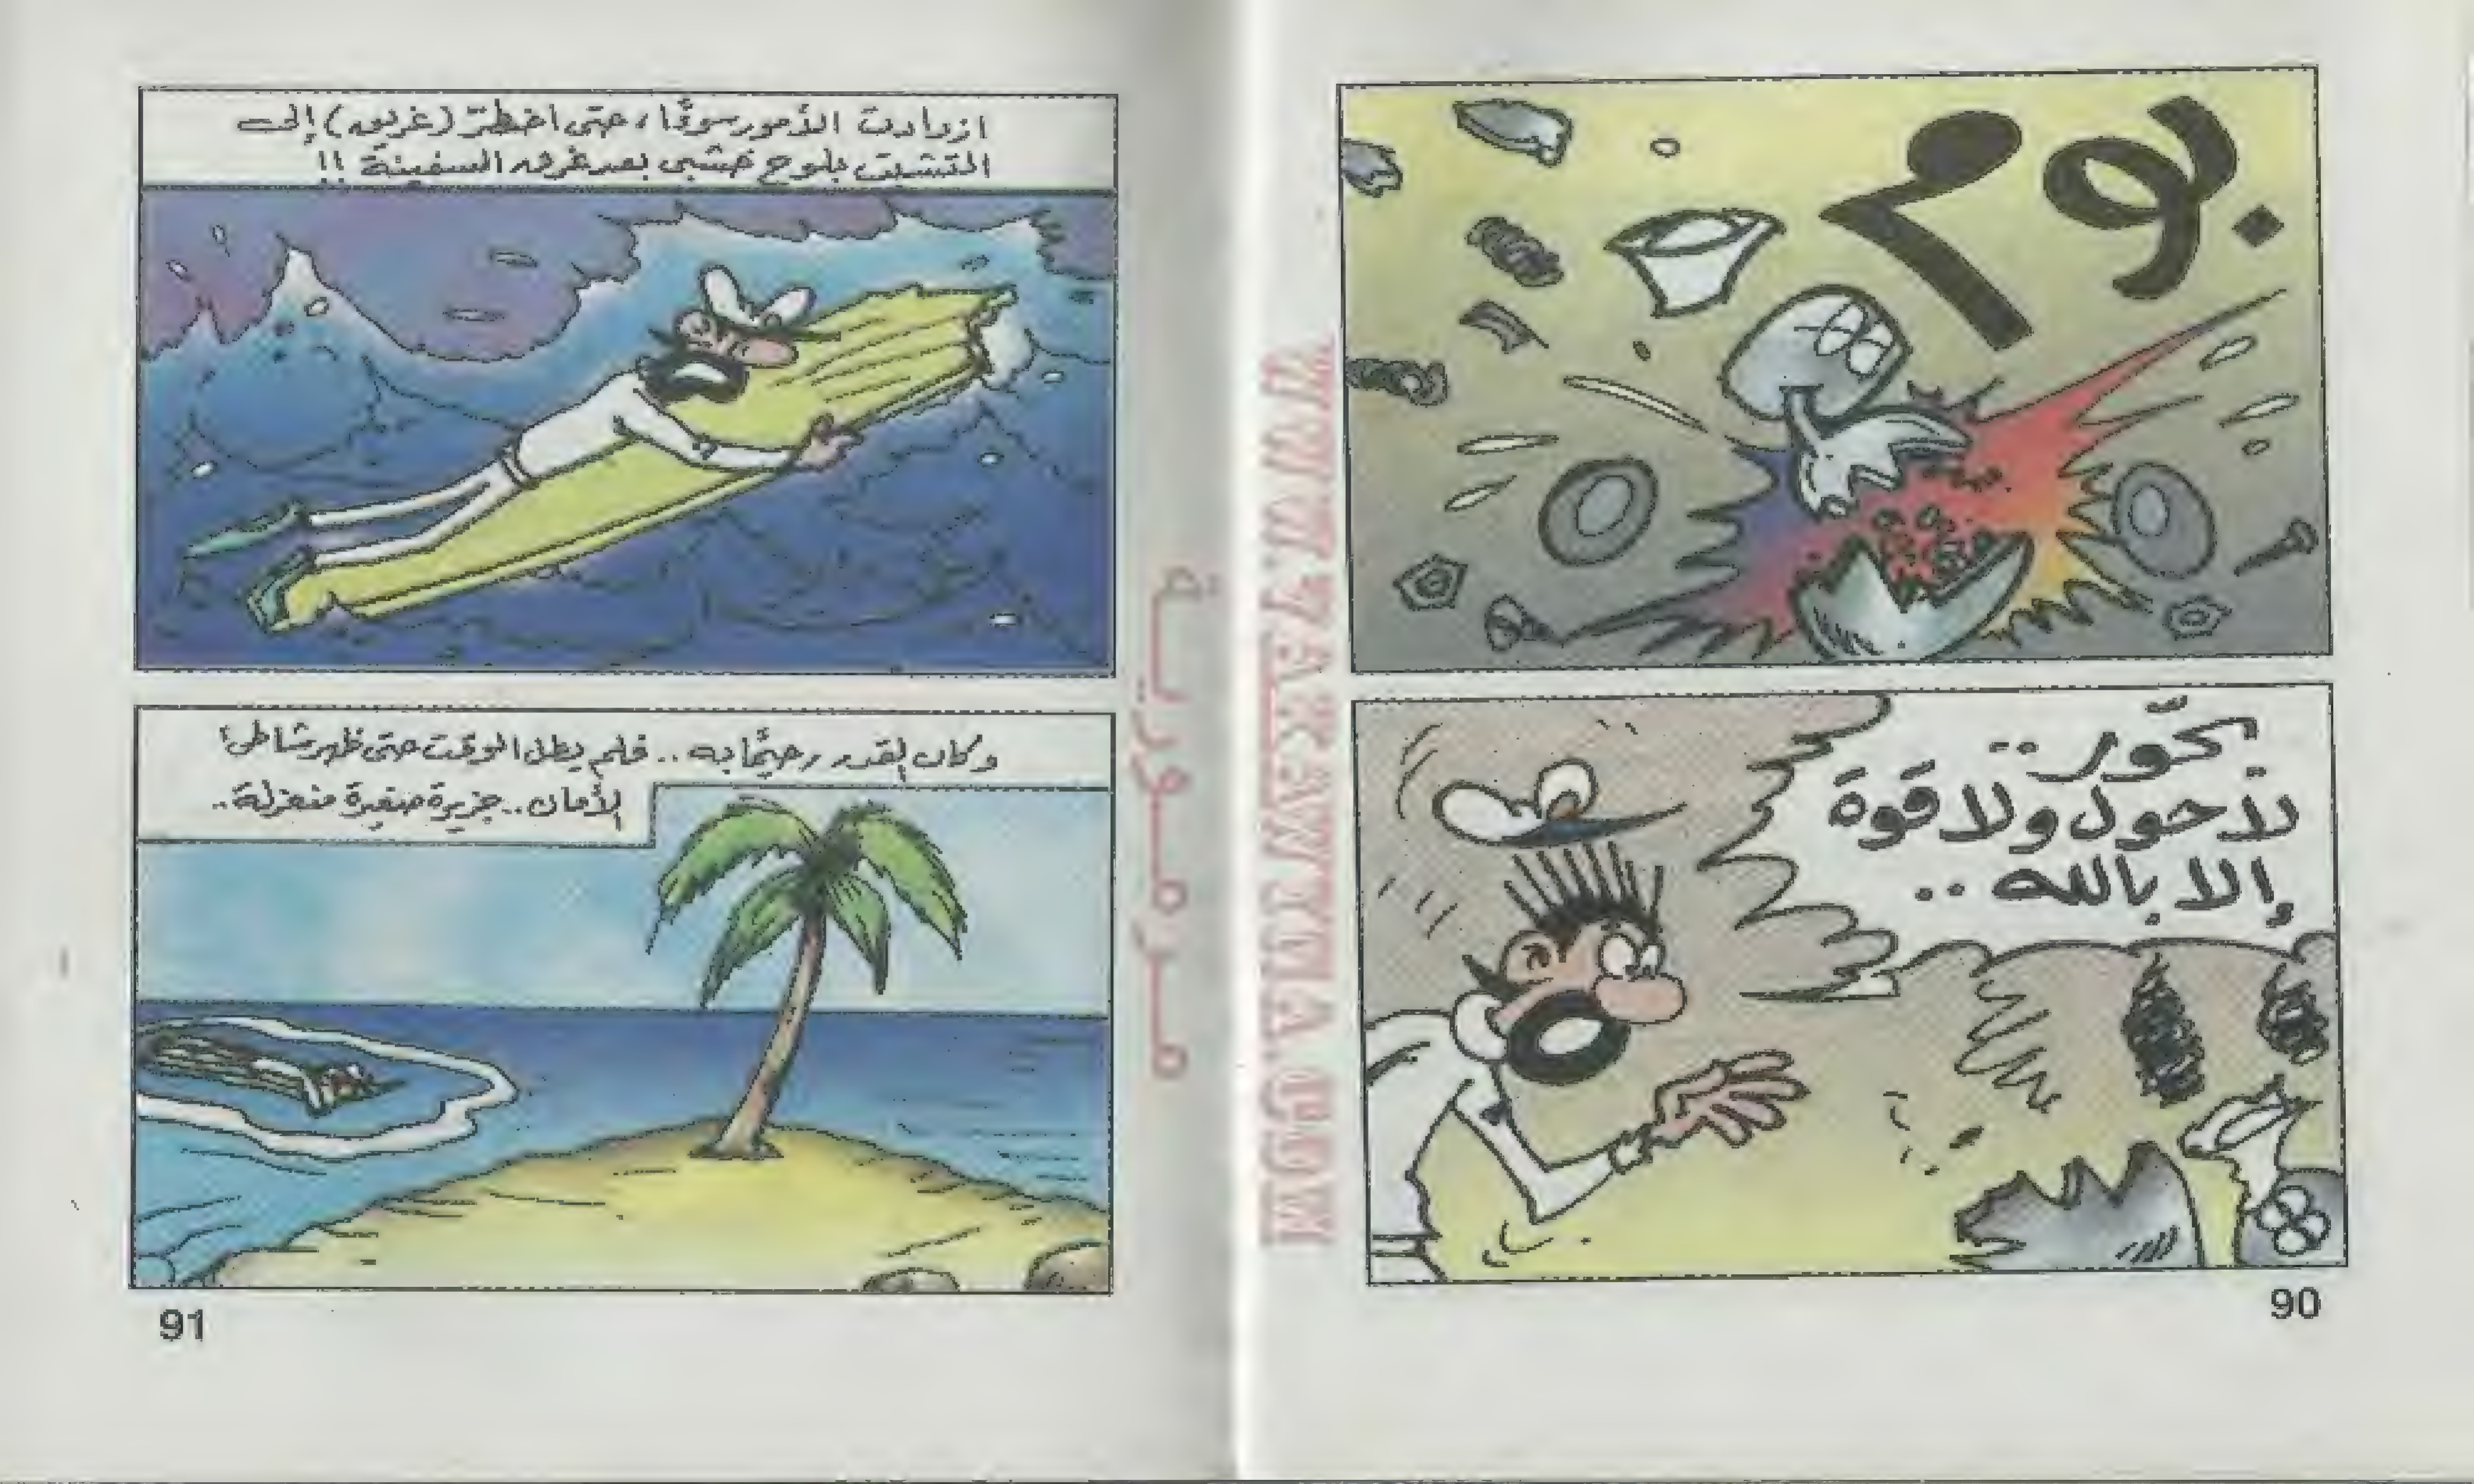 بوم
تحّور..
لا حول ولا قوة
إلا بالله..
90
ازدادت الأمور سوءًا، حتى اضطرّ (غريق) إلى
التشبث بلوح خشبى بعد غرق السفينة !!
وكان القدر رحيمًا به.. فلم يطل الوقت حتى ظهر شاطئ
الأمان.. جزيرة صغيرة منعزلة..
91
مرمورية